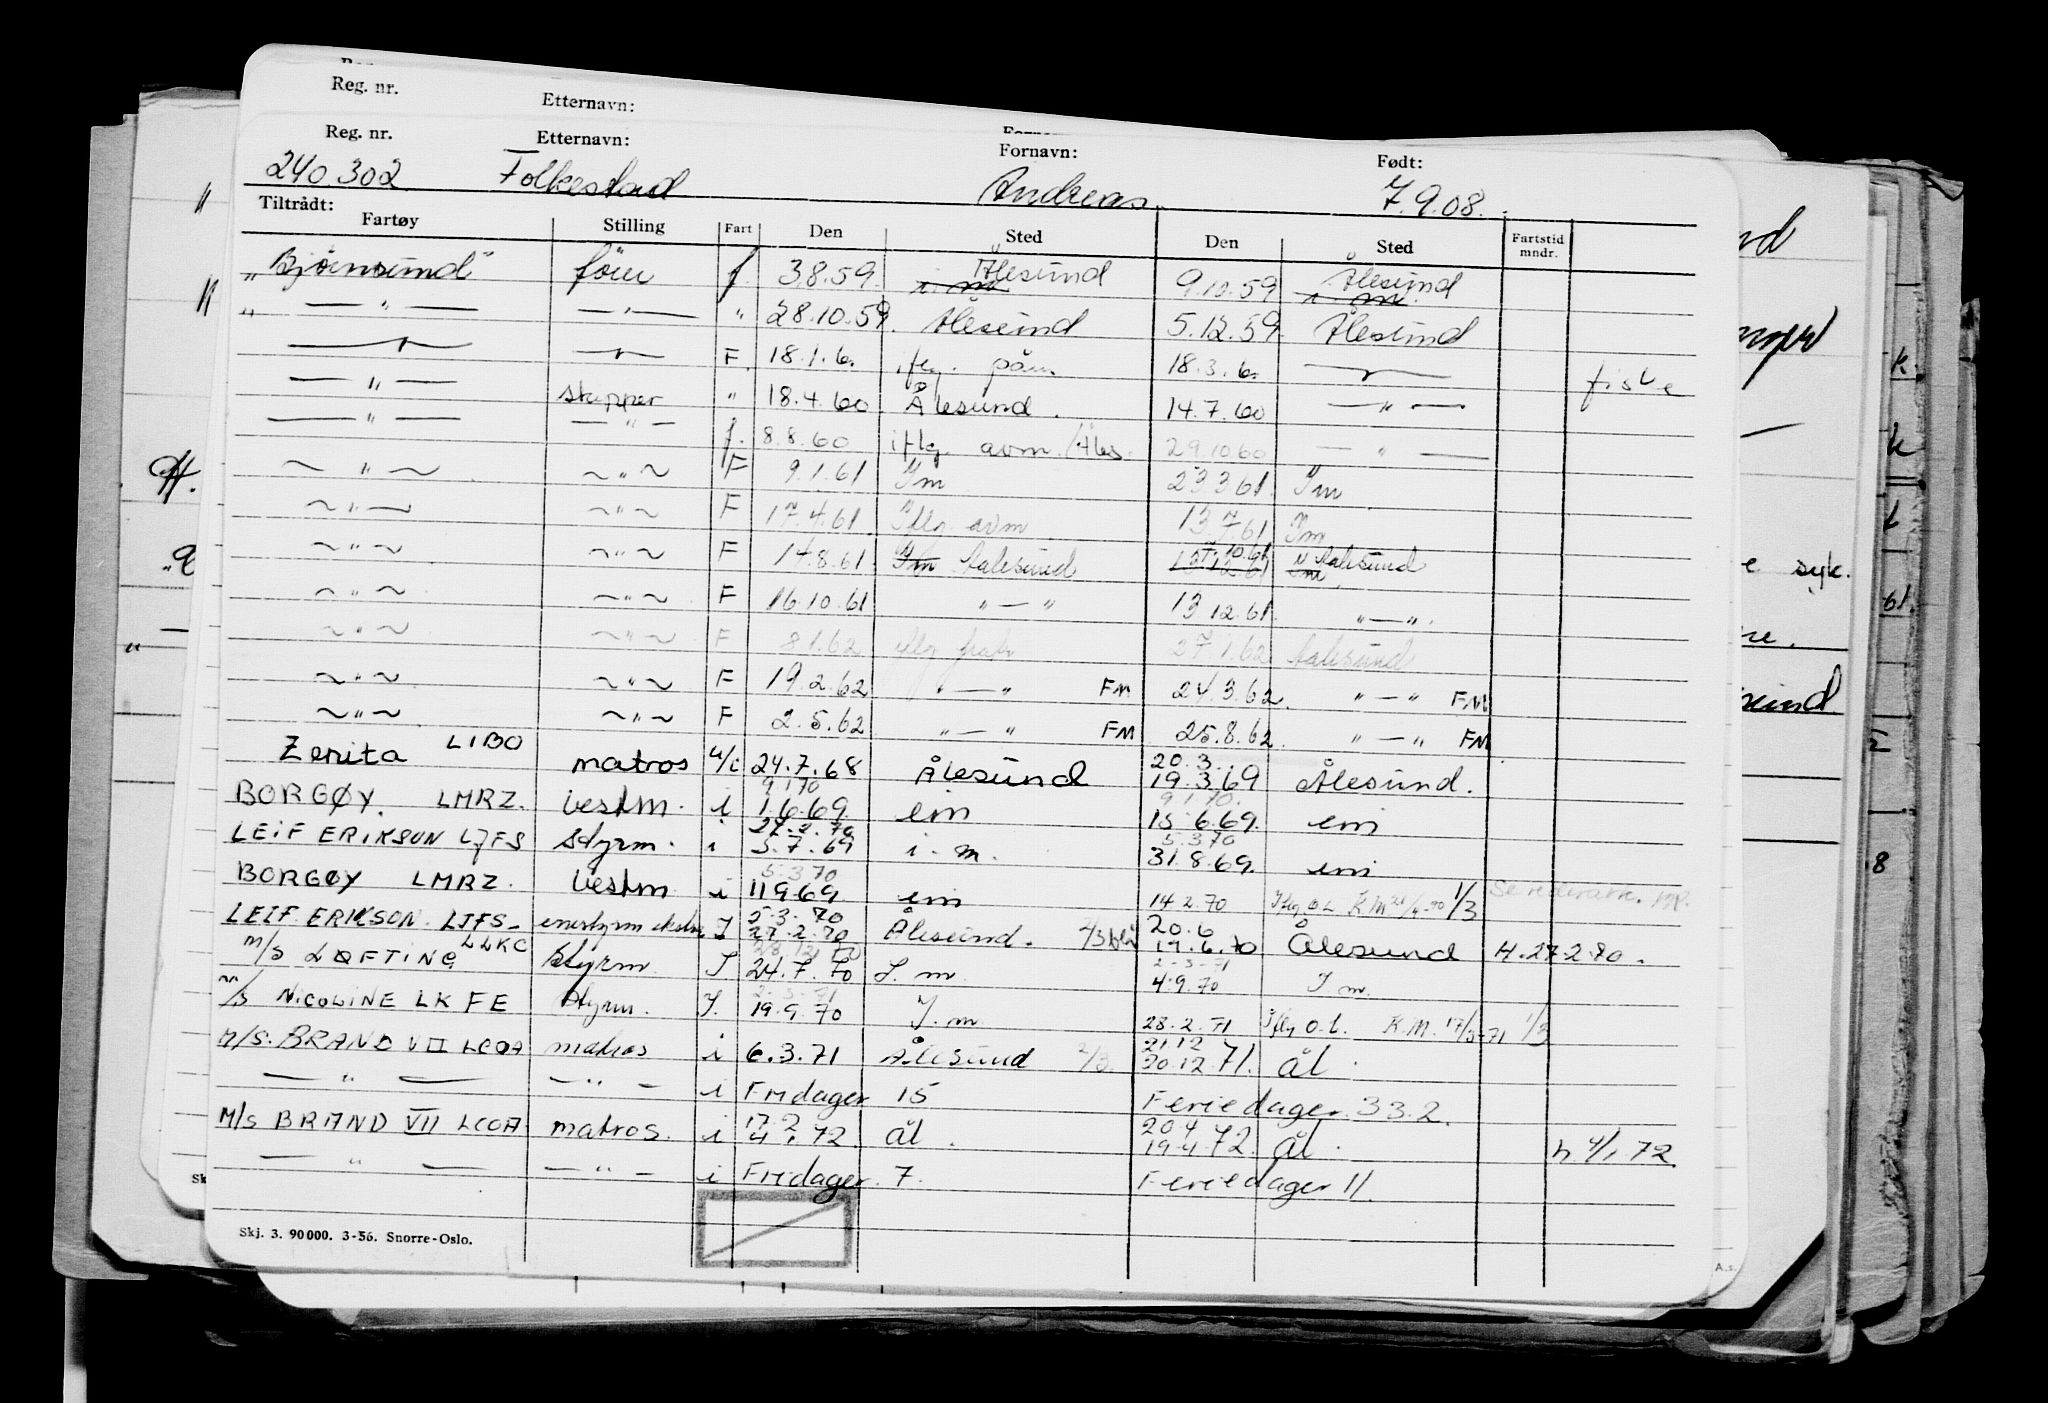 Reg. nr. Etternavn:
Reg. nr. Etternavn: Fornavn: Født:
240.302 Folkestad Andreas. 7.9.08.
Tiltrådt:
Fartøy Stilling Fart Den Sted Den Sted Fartstid mndr.
"Bjørnsund" fører f. 3.8.59. Ålesund 9.10.59 Ålesund
" — " — — " — " 28.10.59. Ålesund 5.12.59. Ålesund
— " — — " — F. 18.1.60 iflg. påm. 18.3.60 — " — fiske
— " — skipper " 18.4.60 Ålesund. 14.7.60 — " —
— " — — " — f. 8.8.60 iflg. avm. /Åles. 29.10.60 — " —
~ " ~ ~ " ~ F 9.1.61 Im 23.3.61. Im
~ " — ~ " ~ F 17.4.61. Iflg. avm. 13.7.61 Im
~ " ~ ~ " ~ F 14.8.61. Im Aalesund 10.61 13.12.61 Im Aalesund
~ " ~ ~ " ~ F 16.10.61 " — " 13.12.61. " — ".
~ " ~ ~ " ~ F 8.1.62 27.1.62 Aalesund
~ " ~ ~ " ~ F 19.2.62 " — " FM 24.3.62. " — " FM
~ " ~ ~ " ~ F 2.5.62 " — " FM 25.8.62. " — " FM
Zenita LIBO matros u/i 24.7.68 Ålesund 20.3. 19.3.69 Ålesund.
BORGØY. LMRZ. Vestm. i 9.1.70 1.6.69. em 9.1.70. 15.6.69. em
LEIF ERIKSON LJFS Styrm. i 27.2.70 5.7.69 i. m. 5.3.70 31.8.69. em
BORGØY LMRZ. Vestm i 5.3.70 11.9.69. em 14.2.70 Iflg O.L. K.M 1/3
LEIF ERIKSON. LJFS- enestyrm ekstra I 5.3.70 27.2.70 Ålesund. 20.6 19.6.70 Ålesund H.27.2.70.
M/S LØFTING LLKC Styrm. I 28.12.70 24.7.70 I. m. 2-3-71 4.9.70 I m.
M/S NICOLINE LKFE Styrm. I. 2.3.71 19.9.70 I. m. 28.2.71 Iflg O.L. K.M. 17/3-71 1/3
M/S. BRAND VII LCOA matros i 6.3.71 Ålesund 2/3. 21.12 20.12.71. ål.
— " — — " — i Fridager 15 Feriedager. 33.2.
M/S BRAND VII LCOA matros. i 17.2 4.1.72. ål. 20.4 19.4.72. ål. h. 4/1 72.
— " — — " — i Fridager. 7. Feriedager 11.
Skj. 3. 90 000. 3-56. Snorre-Oslo.